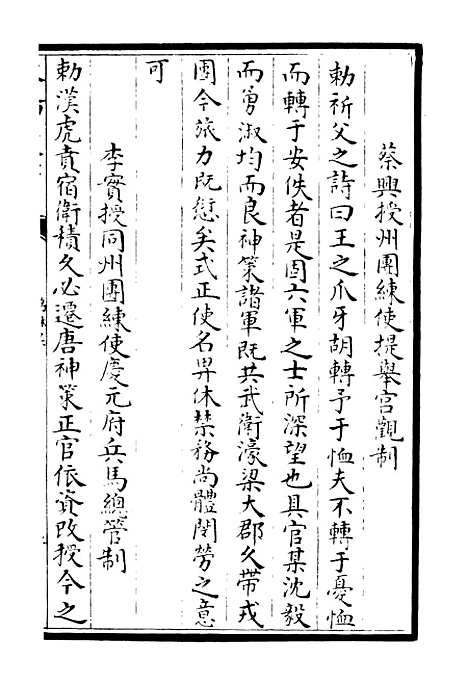 蔡興授州團練使提舉宮觀制
勅祈父之詩曰王之爪牙胡轉予于恤夫不轉于憂恤
而轉于安佚者是固六軍之士所深望也具官某沈毅
而勇淑均而良神策諸軍既共武衛濠梁大郡久帶戎
團今旅力既愆矣式正使名畀休禁務尚體閔勞之意
可
李實授同州團練使慶元府兵馬總管制
勅漢虎賁宿衛積久必遷唐神策正官依資改授今之